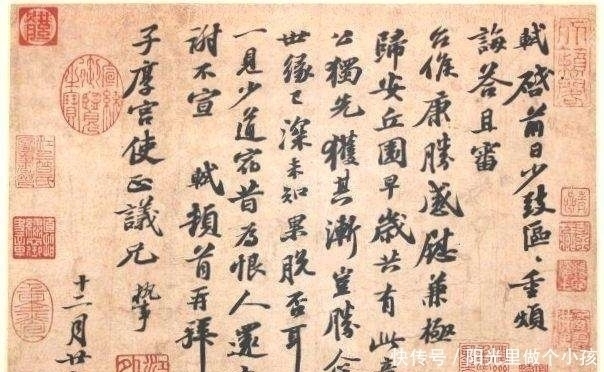 軾啓前日少致區〻重煩
誨荅且審
台候康勝感慰兼極
歸安丘園早歲共有此
公獨先獲其漸豈勝
世緣已深未知果脫否耳
一見少道宿昔為恨人還
謝不宣 軾頓首再拜
子厚宮使正議兄 執
十二月廿
快传号/阳光里做个小孩